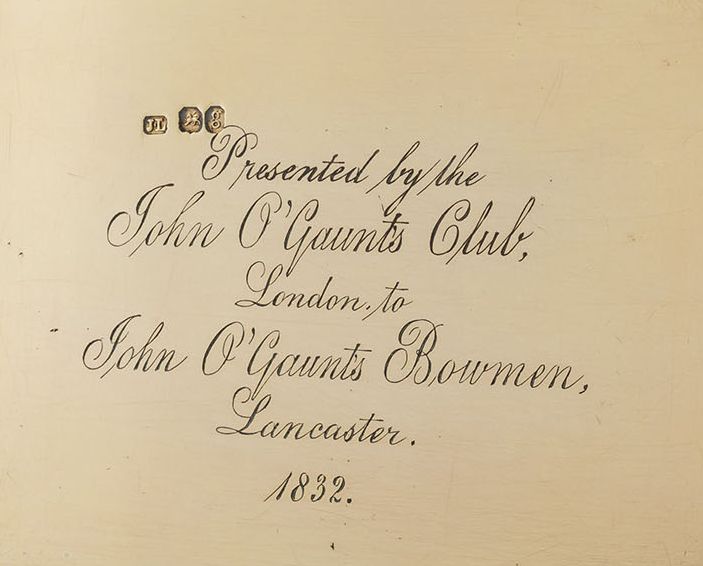 JT g
Presented by the
John O'Gaunts Club,
London. to
John O'Gaunts Bowmen,
Lancaster.
1832.